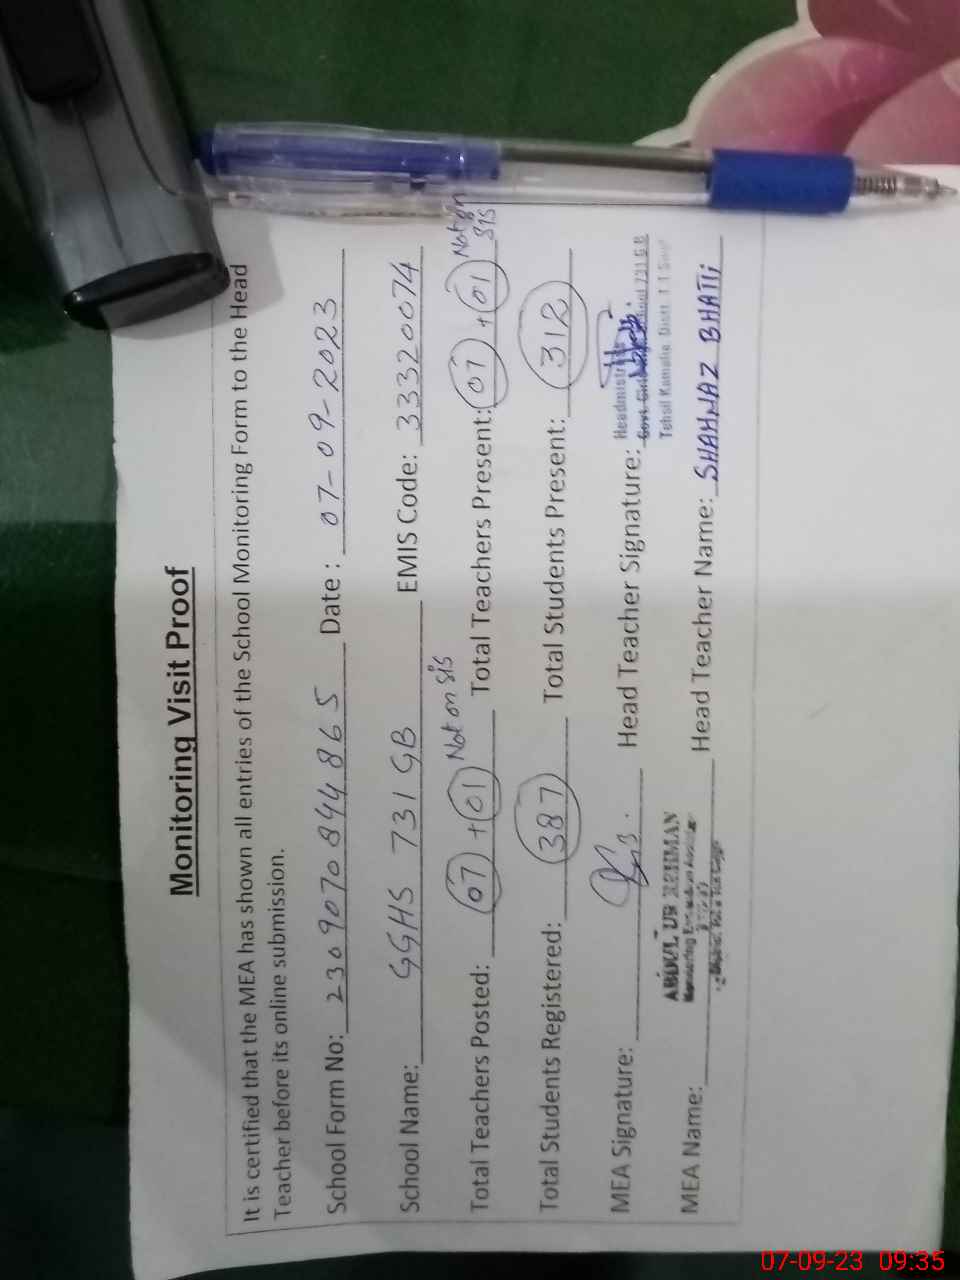 Monitoring Visit Proof
It is certified that the MEA has shown all entries of the School Monitoring Form to the Head
Teacher before its online submission.
School Form No: 2309070844865 Date: 07-09-2023
School Name: GGHS 731 GB EMIS Code: 33320074
Total Teachers Posted: 07 + 01 Not on SIS Total Teachers Present: 07 + 01 Not on SIS
Total Students Registered: 387 Total Students Present: 312
MEA Signature: Head Teacher Signature:
Headmistress
Govt. Girls 731 G.B
Tehsil Kamalia. Distt. T.T
ABDUL UR REHMAN
Monitoring
MEA Name: Head Teacher Name: SHAHNAZ BHATTI
07-09-23 09:35